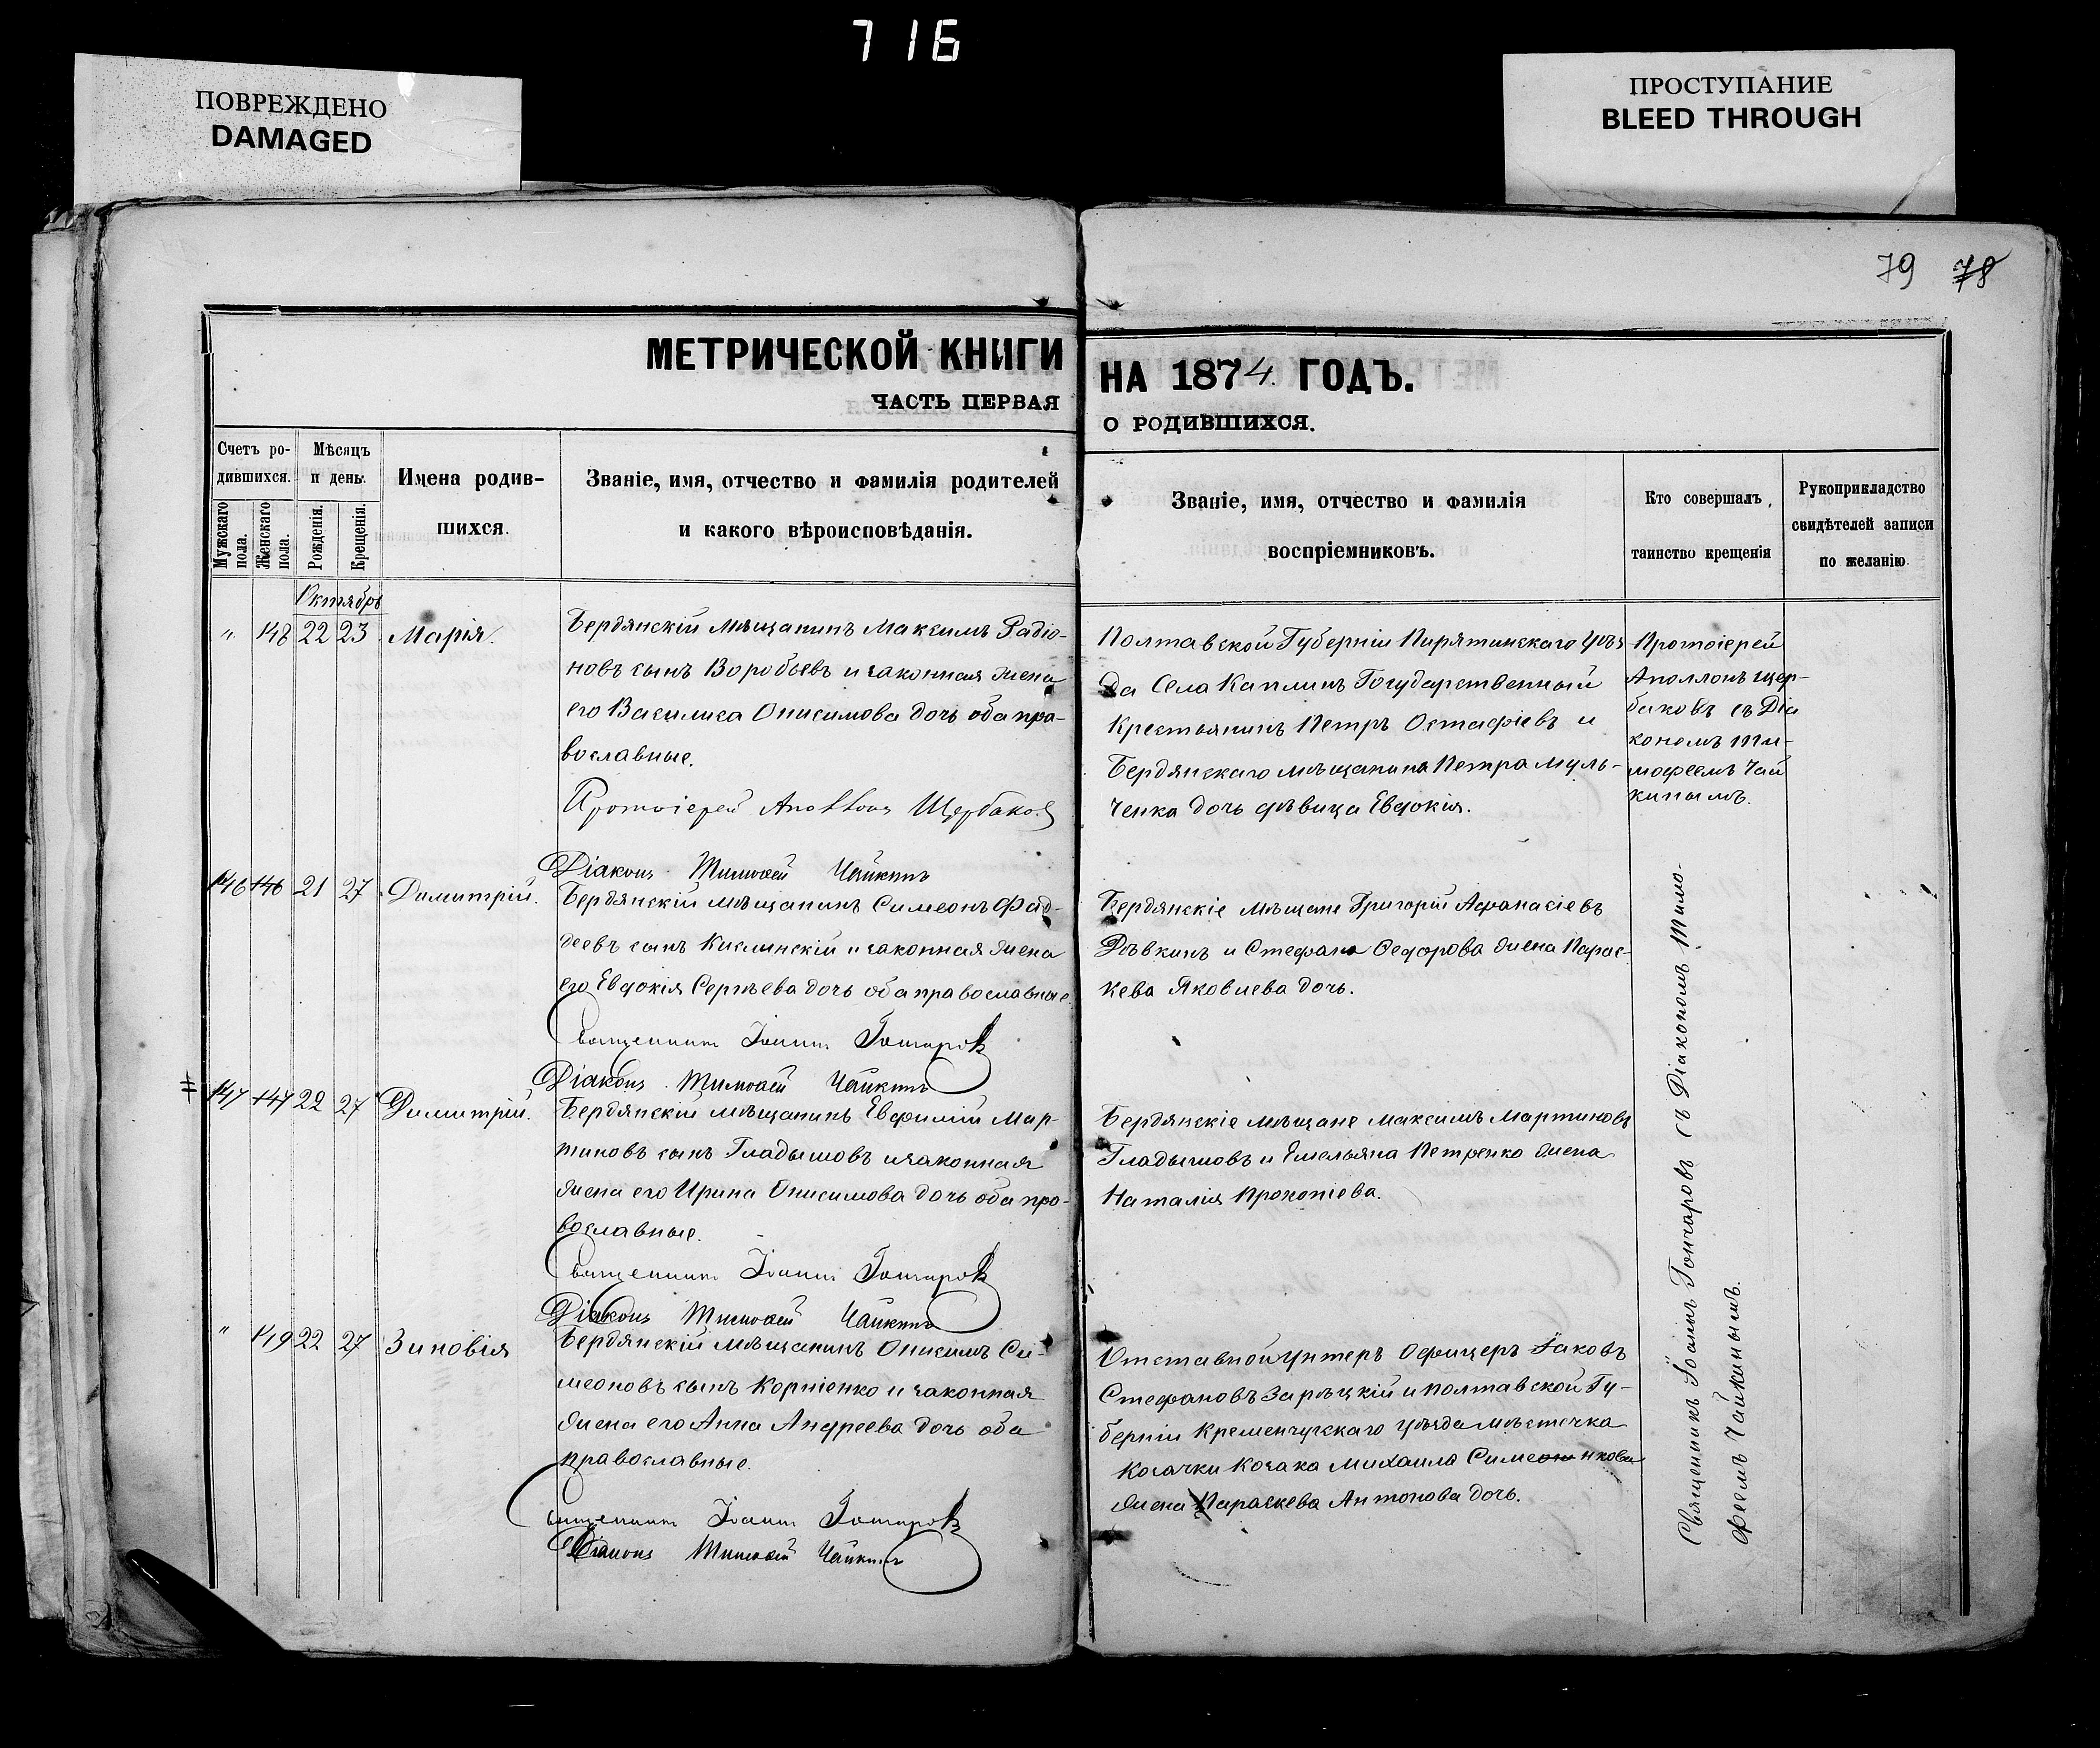 716
ПОВРЕЖДЕНО
DAMAGED
ПРОСТУПАНИЕ
BLEED THROUGH
79 78
МЕТРИЧЕСКОЙ КНИГИ
ЧАСТЬ ПЕРВАЯ
НА 1874. ГОДЪ.
О РОДИВШИХСЯ.
Счетъ ро-
дившихся.
Мужскаго пола.
Женскаго пола.
Мѣсяцъ
и день.
Рожденія.
Крещенія.
Имена родив-
шихся.
Званіе, имя, отчество и фамилія родителей
и какого вѣроисповѣданія.
Званіе, имя, отчество и фамилія
воспріемниковъ.
Кто совершалъ
таинство крещенія
Рукоприкладство
свидѣтелей записи
по желанію
Октябрь
" 148 22 23 Марія.
Бердянскій мѣщанинъ Максимъ Радіо-
новъ сынъ Воробьевъ и законная жена
его Василиса Онисимова дочь оба пра-
вославные.
Протоіерей Аполлонъ Щербаковъ
Діаконъ Тимофей Чайкинъ
Полтавской Губерніи Пирятинскаго уѣз-
да Села Каплинъ Государственный
Крестьянинъ Петръ Остафіевъ и
Бердянскаго мѣщанина Петра Муль-
ченка дочь дѣвица Евдокія.
Протоіерей
Аполлонъ Щер-
баковъ съ Діа
кономъ Ти-
мофеемъ Чай
кинымъ.
146 146 21 27 Димитрій.
Бердянскій мѣщанинъ Симеонъ Фад-
деевъ сынъ Кислинскій и законная жена
его Евдокія Сергѣева дочь оба православные.
Священникъ Іоаннъ Гончаровъ
Діаконъ Тимофей Чайкинъ
Бердянскіе мѣщане Григорій Афанасіевъ
Рѣвкинъ и Стефана Федорова жена Парас-
кева Яковлева дочь.
147 147 22 27 Димитрій.
Бердянскій мѣщанинъ Евфимій Мар-
тиновъ сынъ Гладышовъ и законная
жена его Ирина Онисимова дочь оба пра-
вославные.
Священникъ Іоаннъ Гончаровъ
Діаконъ Тимофей Чайкинъ
Бердянскіе мѣщане Максимъ Мартиновъ
Гладышовъ и Емельяна Петренко жена
Наталія Прокопіева.
" 149 22 27 Зиновія
Бердянскій мѣщанинъ Онисимъ Си-
меоновъ сынъ Корніенко и законная
жена его Анна Андреева дочь оба
православные.
Священникъ Іоаннъ Гончаровъ
Діаконъ Тимофей Чайкинъ
Отставной унтеръ Офицеръ Іаковъ
Стефановъ Зарѣцкій и Полтавской Гу-
берніи Кременчугскаго уѣзда мѣстечка
Козачки Козака Михаила
жена Параскева Антонова дочь.
Священникъ Іоаннъ Гончаровъ съ Діакономъ Тимо-
феемъ Чайкинымъ.